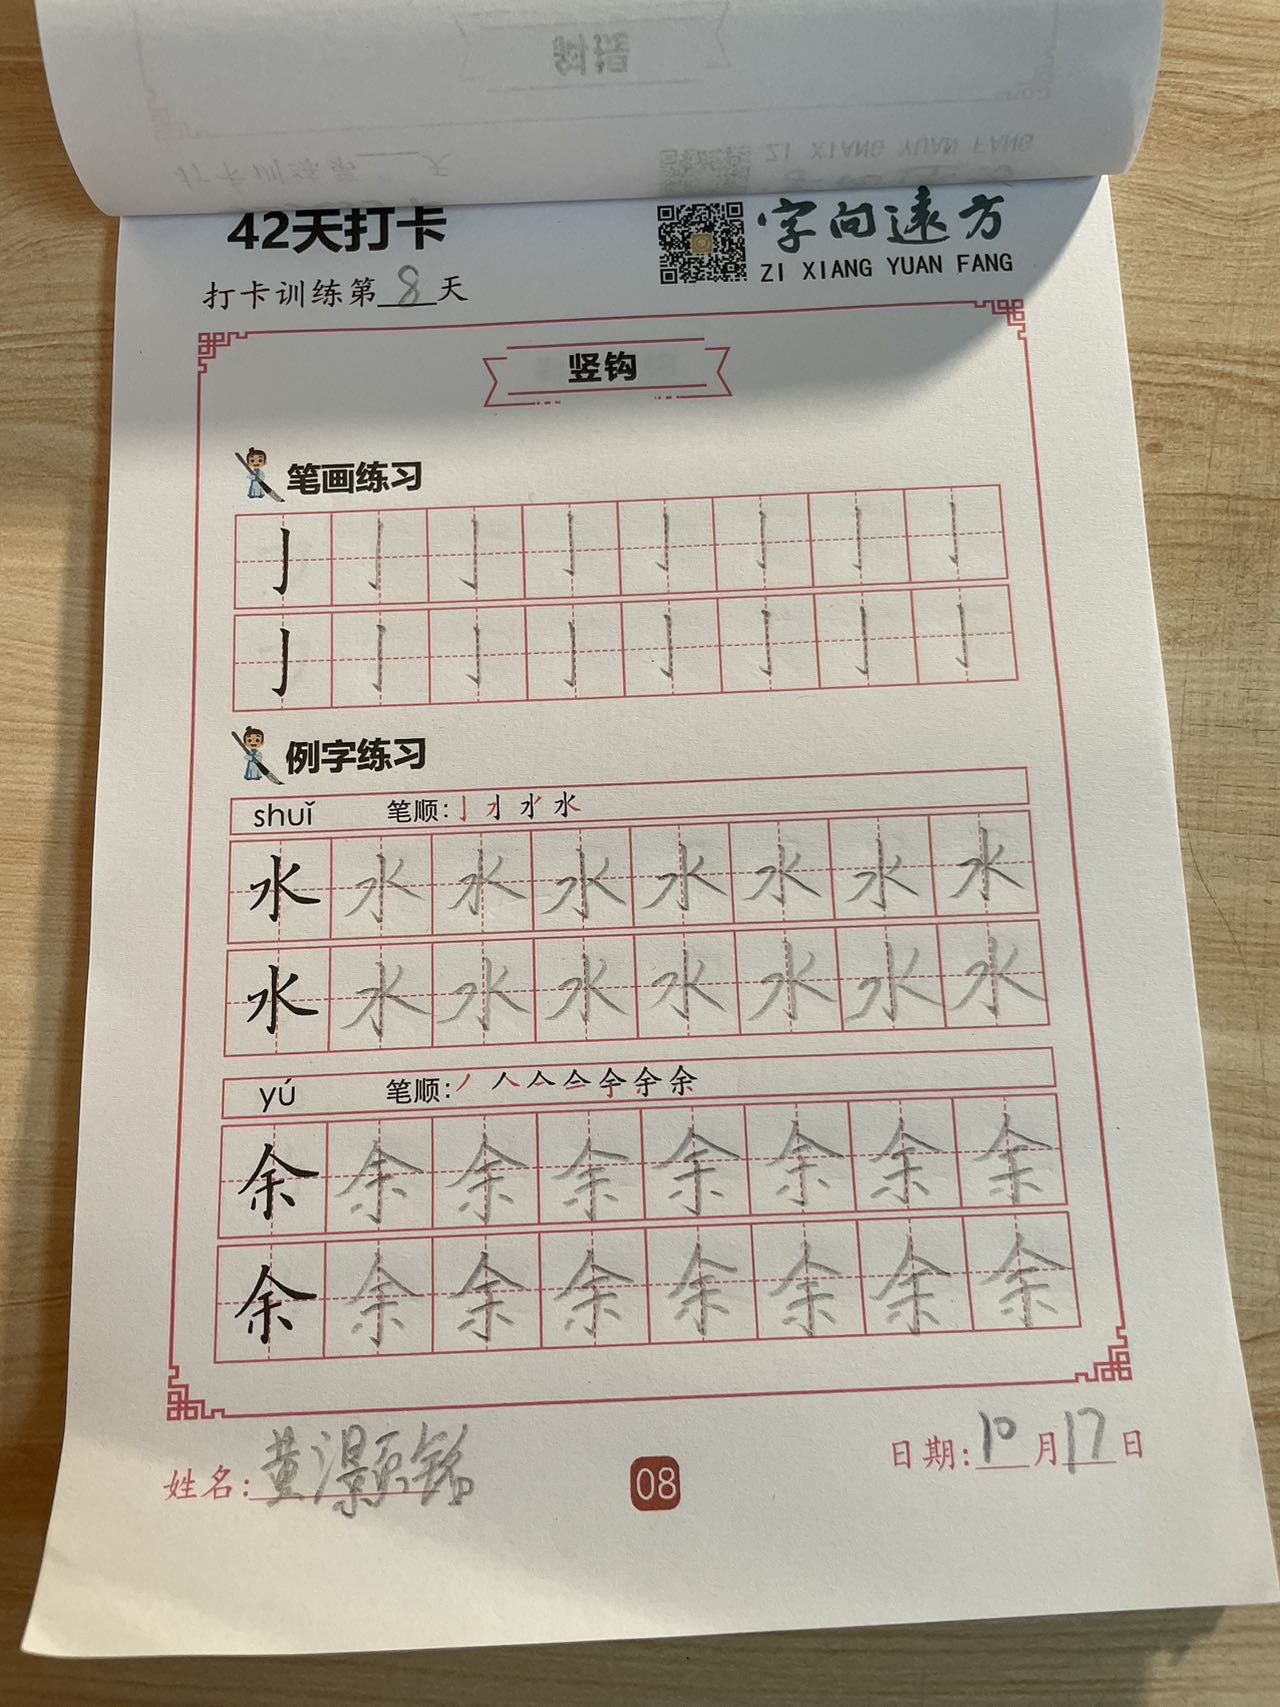 42天打卡
字向远方
ZI XIANG YUAN FANG
打卡训练第8天
竖钩
笔画练习
亅亅亅亅亅亅亅亅
亅亅亅亅亅亅亅亅
例字练习
shuǐ 笔顺:
水水水水水水水水
水水水水水水水水
yú 笔顺:
余余余余余余余余
余余余余余余余余
姓名:黄灏铭
08
日期:10月17日